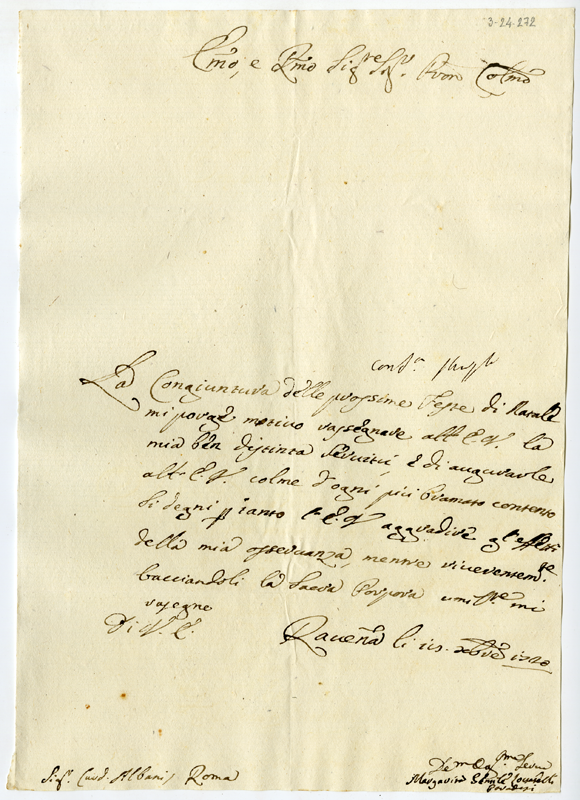 3-24.272
Emo, e Rmo Sigre Sigr. Pron Colmo
La Congiuntura delle prossime Feste di Natale
mi porge motivo rassegnare all' E.V. la
mia ben distinta servitù e di augurarle
all' E.V. colme d'ogni più bramato contento
Si degni p tanto l' E.V. aggradire gl' effetti
della mia osservanza, mentre riverentemte
bacciandoli la Sacra Porpora umilte mi
rasegno
Di V. E.
Ravena li 15. Xbre 1720
Sigr. Card. Albani, Roma
Margarita